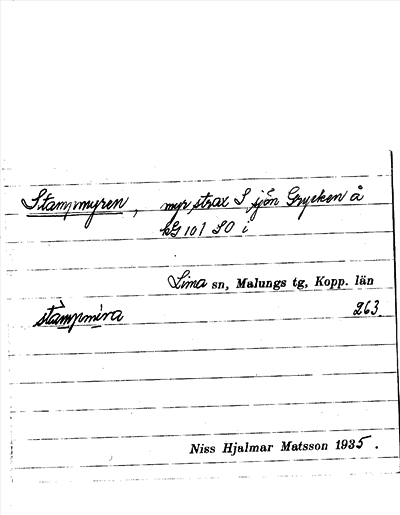 Stampmyren, myr strax S sjön Grycken å
kG 101 SO i
Lima sn, Malungs tg, Kopp. län
stampmira 263.
Niss Hjalmar Matsson 1935.